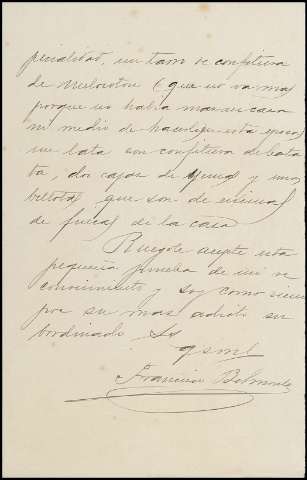 pecialidad, un tarro de confitura
de melocoton (que no va mas
porque no había mas en casa
ni medio de hacerlo en esta epoca)
una lata con confitura de bata
ta, dos cajas de yemas y unas
bellotas que son de encinas
de fincas de la casa
Ruegole acepte esta
pequeña prueba de mi re
conocimiento y soy como siem
pre su mas adicto su
bordinado Ss
qsml
Francisco Belmonte